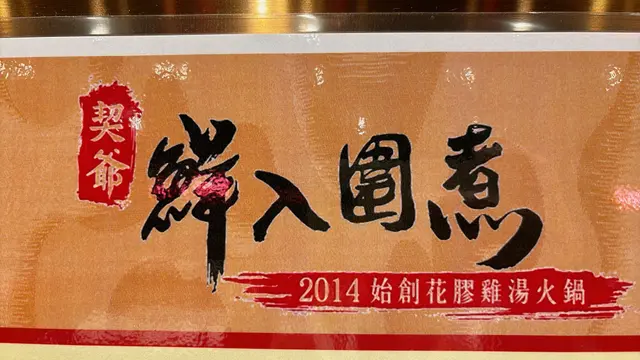 契爺
鮮入圍煮
2014 始創花膠雞湯火鍋